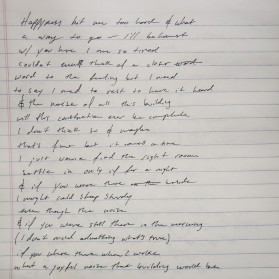 Happiness hit me too hard & what
a way to go — I'll be honest
w/ you here I am so tired
couldn't even think of a closer word
word to the feeling but I need
to say I need to rest to have it heard
& the noise of all this building
will this construction ever be complete
I don't think so & maybe
that's fine but it
I just wanna find the right room
settle in only if for a night
& if you were there inside
I might could sleep steady
even though the noise
& if you were still there in the morning
(I don't mind admitting what's true)
if you where there when I woke
what a joyful noise that building would be